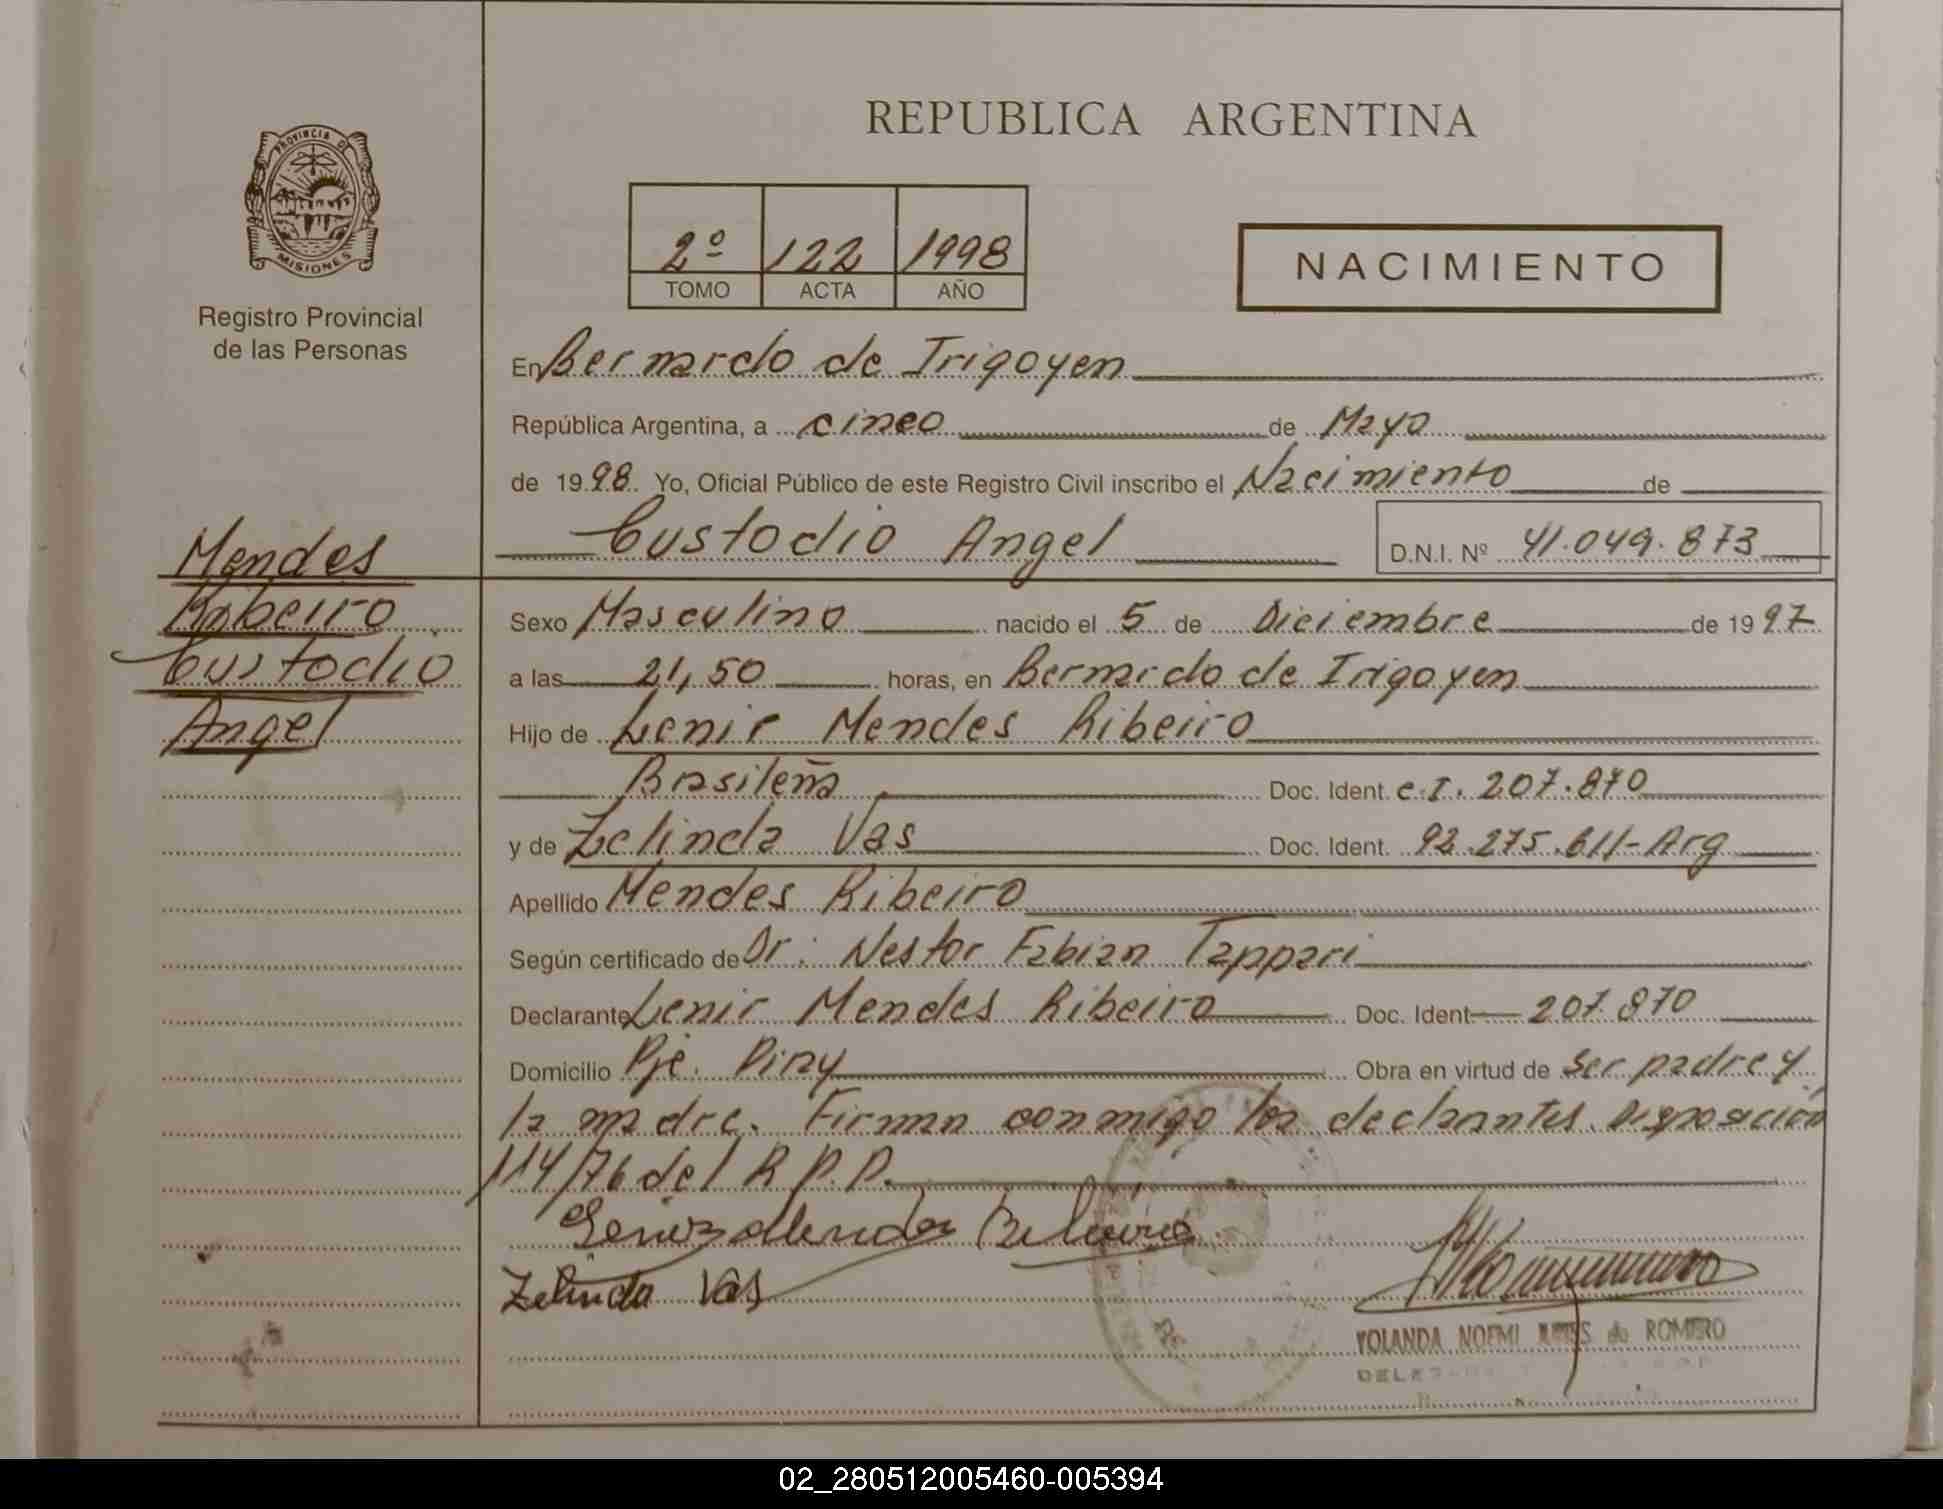 REPUBLICA ARGENTINA
PROVINCIA D
MISIONES
Registro Provincial
de las Personas
2º 122 1998
TOMO ACTA AÑO
NACIMIENTO
En Bernardo de Irigoyen
República Argentina, a cinco de Mayo
de 1998. Yo, Oficial Público de este Registro Civil inscribo el Nacimiento de
Custodio Angel D.N.I. Nº 41.049.873
Mendes
Ribeiro
Custodio
Angel
Sexo Masculino nacido el 5 de Diciembre de 1997
a las 21,50 horas, en Bernardo de Irigoyen
Hijo de Lenir Mendes Ribeiro
Brasileña Doc. Ident. C.I. 207.870
y de Zelinda Vas Doc. Ident. 92.275.611-Arg
Apellido Mendes Ribeiro
Según certificado de Dr. Nestor Fabian Tappari
Declarante Lenir Mendes Ribeiro Doc. Ident 207.870
Domicilio Pje. Piray Obra en virtud de Ser padre y
la madre. Firman conmigo los declarantes. Disposición
114/76 del R.P.P.
Zelinda Vas
YOLANDA NOEMI de ROMERO
02_280512005460-005394